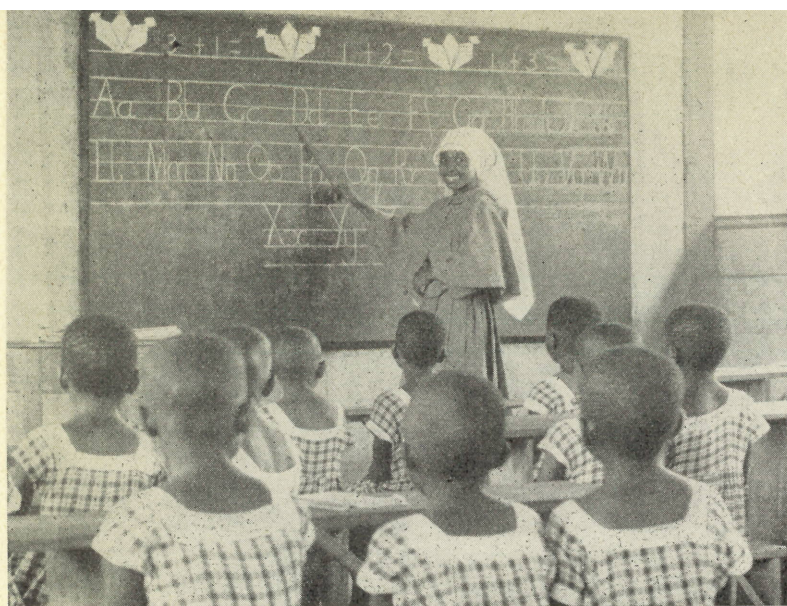 2+1= 1+2= 1+3=
Aa Bb Cc Dd Ee Ff Gg
Mm Nn Oo Pp Qq Rr
Xx Yy